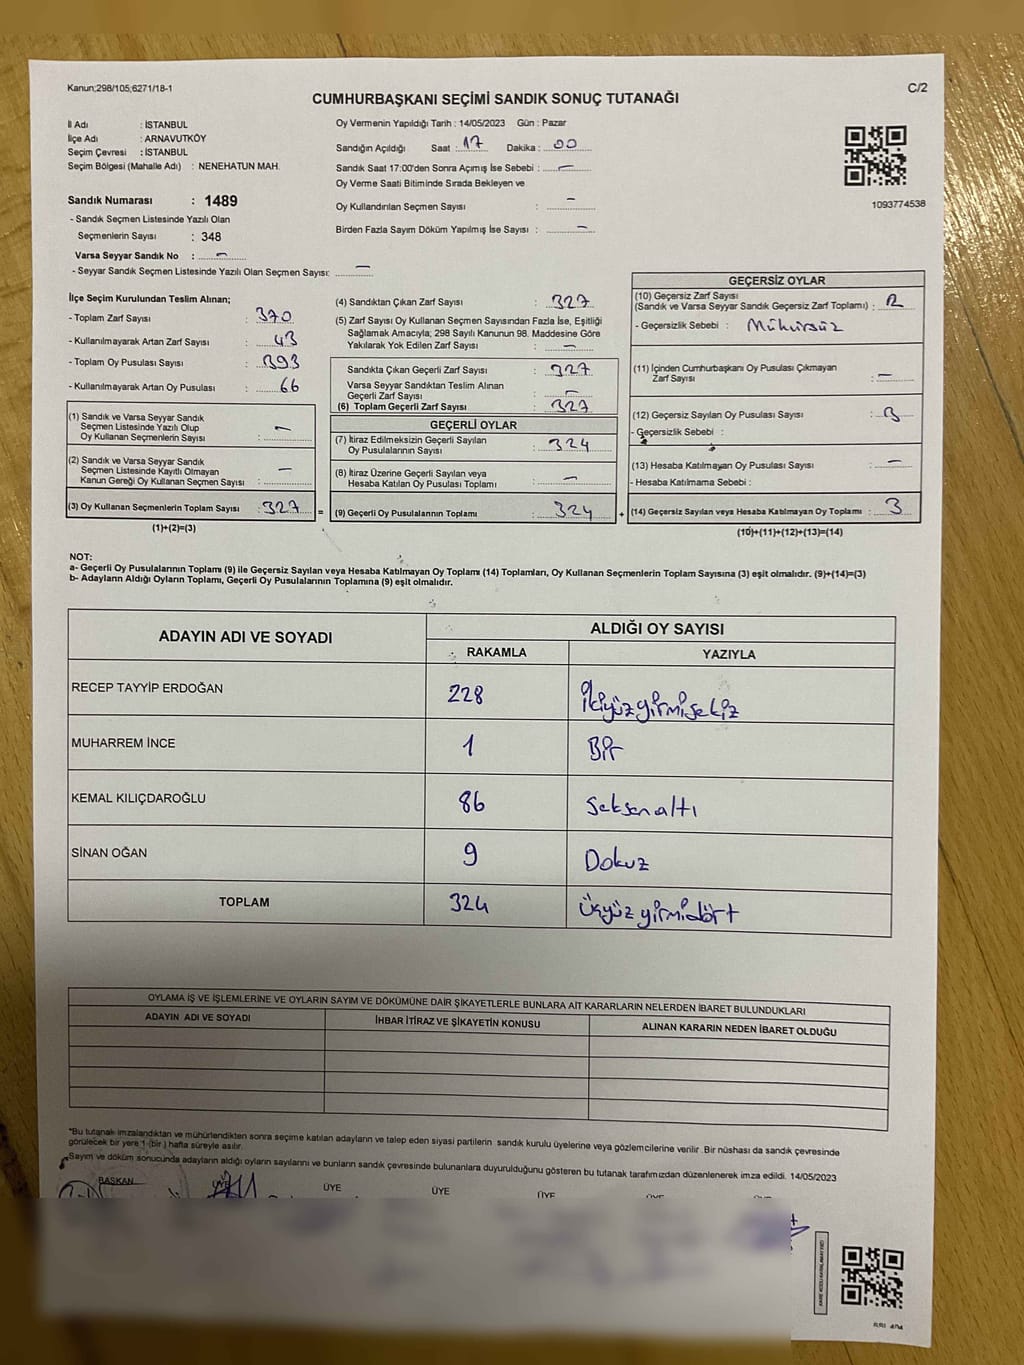 Kanun;298/105;6271/18-1
C/2
CUMHURBAŞKANI SEÇİMİ SANDIK SONUÇ TUTANAĞI
İl Adı : İSTANBUL
İlçe Adı : ARNAVUTKÖY
Seçim Çevresi : İSTANBUL
Seçim Bölgesi (Mahalle Adı) : NENEHATUN MAH.
Oy Vermenin Yapıldığı Tarih : 14/05/2023 Gün : Pazar
Sandığın Açıldığı Saat : 17 Dakika : 00
Sandık Saat 17:00'den Sonra Açımış İse Sebebi : —
Oy Verme Saati Bitiminde Sırada Bekleyen ve
Oy Kullandırılan Seçmen Sayısı : —
Birden Fazla Sayım Döküm Yapılmış İse Sayısı : —
1093774538
Sandık Numarası : 1489
- Sandık Seçmen Listesinde Yazılı Olan
Seçmenlerin Sayısı : 348
Varsa Seyyar Sandık No : —
- Seyyar Sandık Seçmen Listesinde Yazılı Olan Seçmen Sayısı: —
İlçe Seçim Kurulundan Teslim Alınan;
- Toplam Zarf Sayısı : 370
- Kullanılmayarak Artan Zarf Sayısı : 43
- Toplam Oy Pusulası Sayısı : 393
- Kullanılmayarak Artan Oy Pusulası : 66
(1) Sandık ve Varsa Seyyar Sandık
Seçmen Listesinde Yazılı Olup
Oy Kullanan Seçmenlerin Sayısı : —
(2) Sandık ve Varsa Seyyar Sandık
Seçmen Listesinde Kayıtlı Olmayan
Kanun Gereği Oy Kullanan Seçmen Sayısı : —
(3) Oy Kullanan Seçmenlerin Toplam Sayısı : 327
(1)+(2)=(3)
=
(4) Sandıktan Çıkan Zarf Sayısı : 327
(5) Zarf Sayısı Oy Kullanan Seçmen Sayısından Fazla İse, Eşitliği
Sağlamak Amacıyla; 298 Sayılı Kanunun 98. Maddesine Göre
Yakılarak Yok Edilen Zarf Sayısı : —
Sandıkta Çıkan Geçerli Zarf Sayısı : 327
Varsa Seyyar Sandıktan Teslim Alınan
Geçerli Zarf Sayısı : —
(6) Toplam Geçerli Zarf Sayısı : 327
GEÇERLİ OYLAR
(7) İtiraz Edilmeksizin Geçerli Sayılan
Oy Pusulalarının Sayısı : 324
(8) İtiraz Üzerine Geçerli Sayılan veya
Hesaba Katılan Oy Pusulası Toplamı : —
(9) Geçerli Oy Pusulalarının Toplamı : 324
+
GEÇERSİZ OYLAR
(10) Geçersiz Zarf Sayısı
(Sandık ve Varsa Seyyar Sandık Geçersiz Zarf Toplamı) :
- Geçersizlik Sebebi : Mühürsüz
(11) İçinden Cumhurbaşkanı Oy Pusulası Çıkmayan
Zarf Sayısı : —
(12) Geçersiz Sayılan Oy Pusulası Sayısı : 3
- Geçersizlik Sebebi :
(13) Hesaba Katılmayan Oy Pusulası Sayısı : —
- Hesaba Katılmama Sebebi :
(14) Geçersiz Sayılan veya Hesaba Katılmayan Oy Toplamı : 3
(10)+(11)+(12)+(13)=(14)
NOT:
a- Geçerli Oy Pusulalarının Toplamı (9) ile Geçersiz Sayılan veya Hesaba Katılmayan Oy Toplamı (14) Toplamları, Oy Kullanan Seçmenlerin Toplam Sayısına (3) eşit olmalıdır. (9)+(14)=(3)
b- Adayların Aldığı Oyların Toplamı, Geçerli Oy Pusulalarının Toplamına (9) eşit olmalıdır.
ADAYIN ADI VE SOYADI
ALDIĞI OY SAYISI
RAKAMLA YAZIYLA
RECEP TAYYİP ERDOĞAN 228 İkiyüzyirmisekiz
MUHARREM İNCE 1 Bir
KEMAL KILIÇDAROĞLU 86 Seksenaltı
SİNAN OĞAN 9 Dokuz
TOPLAM 324 Üçyüzyirmidört
OYLAMA İŞ VE İŞLEMLERİNE VE OYLARIN SAYIM VE DÖKÜMÜNE DAİR ŞİKAYETLERLE BUNLARA AİT KARARLARIN NELERDEN İBARET BULUNDUKLARI
ADAYIN ADI VE SOYADI İHBAR İTİRAZ VE ŞİKAYETİN KONUSU ALINAN KARARIN NEDEN İBARET OLDUĞU
*Bu tutanak imzalandıktan ve mühürlendikten sonra seçime katılan adayların ve talep eden siyasi partilerin sandık kurulu üyelerine veya gözlemcilerine verilir. Bir nüshası da sandık çevresinde
görülecek bir yere 1 (bir) hafta süreyle asılır.
Sayım ve döküm sonucunda adayların aldığı oyların sayılarını ve bunların sandık çevresinde bulunanlara duyurulduğunu gösteren bu tutanak tarafımızdan düzenlenerek imza edildi. 14/05/2023
BAŞKAN ÜYE ÜYE ÜYE ÜYE ÜYE ÜYE